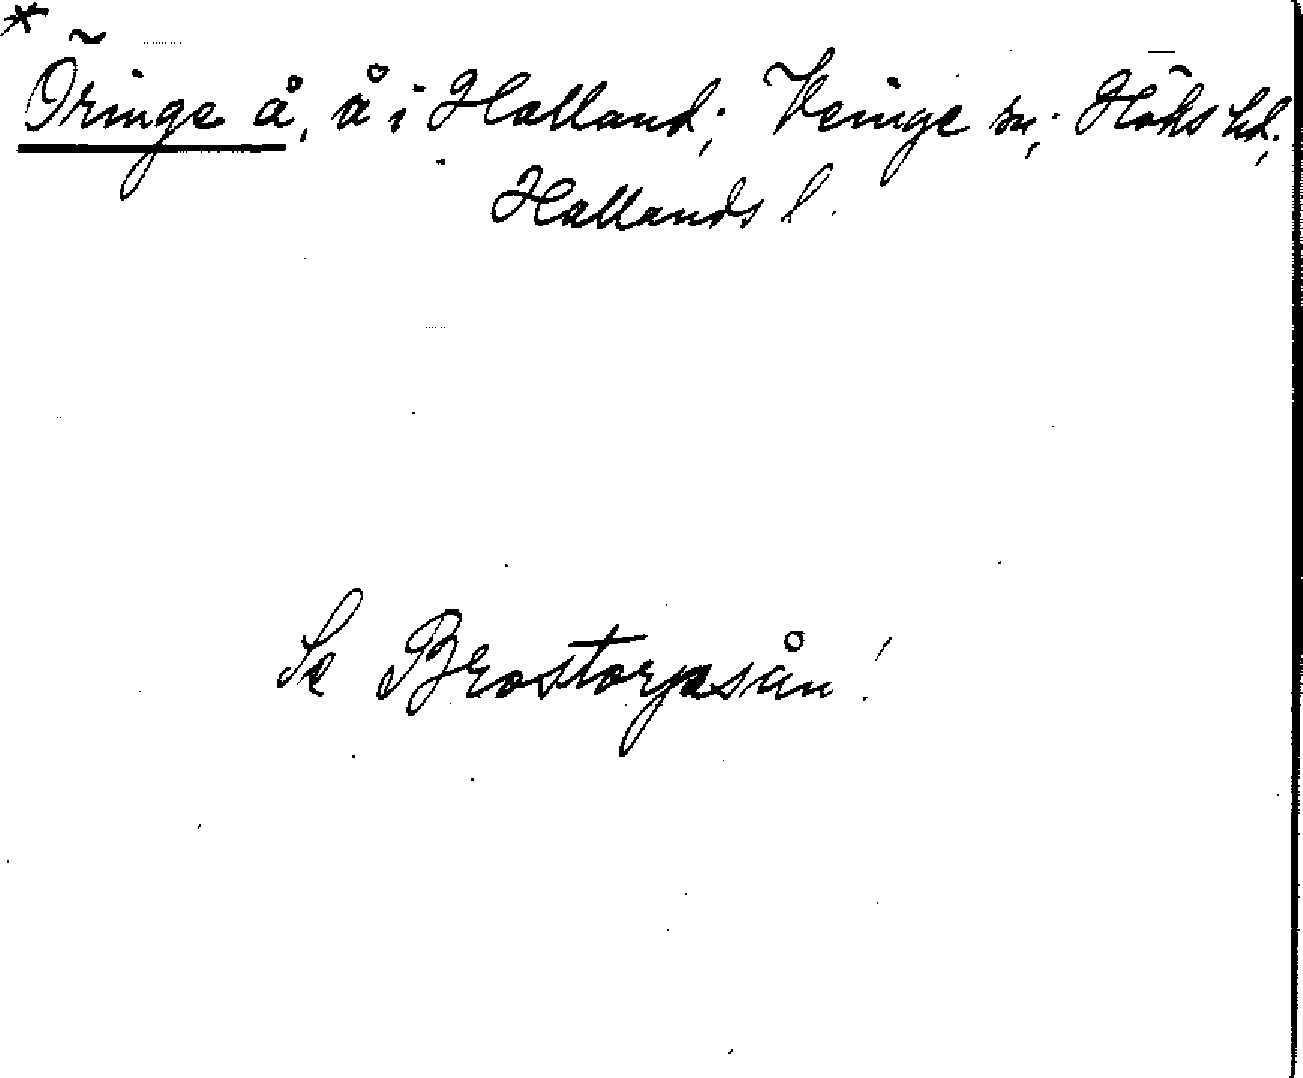 * Öringe å, å i Halland; Veinge sn; Höks hd;
Hallands l.
Se Brostorpsån!